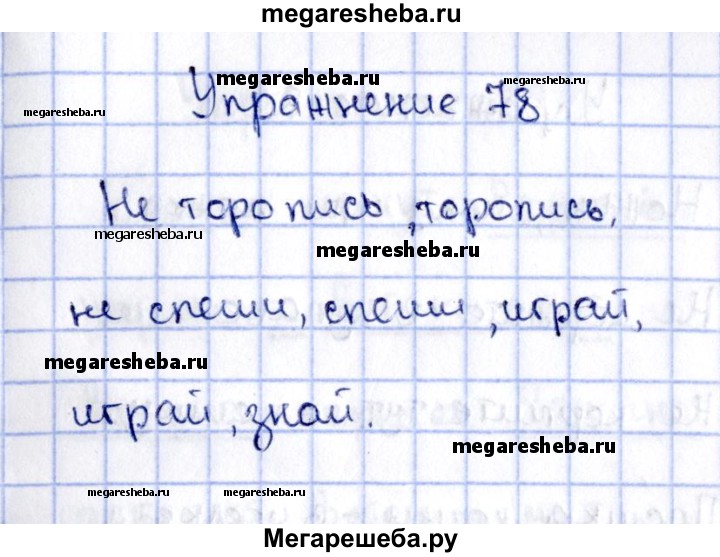 megaresheba.ru
megaresheba.ru
megaresheba.ru
Упражнение 78
megaresheba.ru
Не торопись, торопись,
megaresheba.ru
megaresheba.ru
не спеши, спеши, играй,
megaresheba.ru
играй, знай.
megaresheba.ru
megaresheba.ru
megaresheba.ru
Мегарешеба.ру